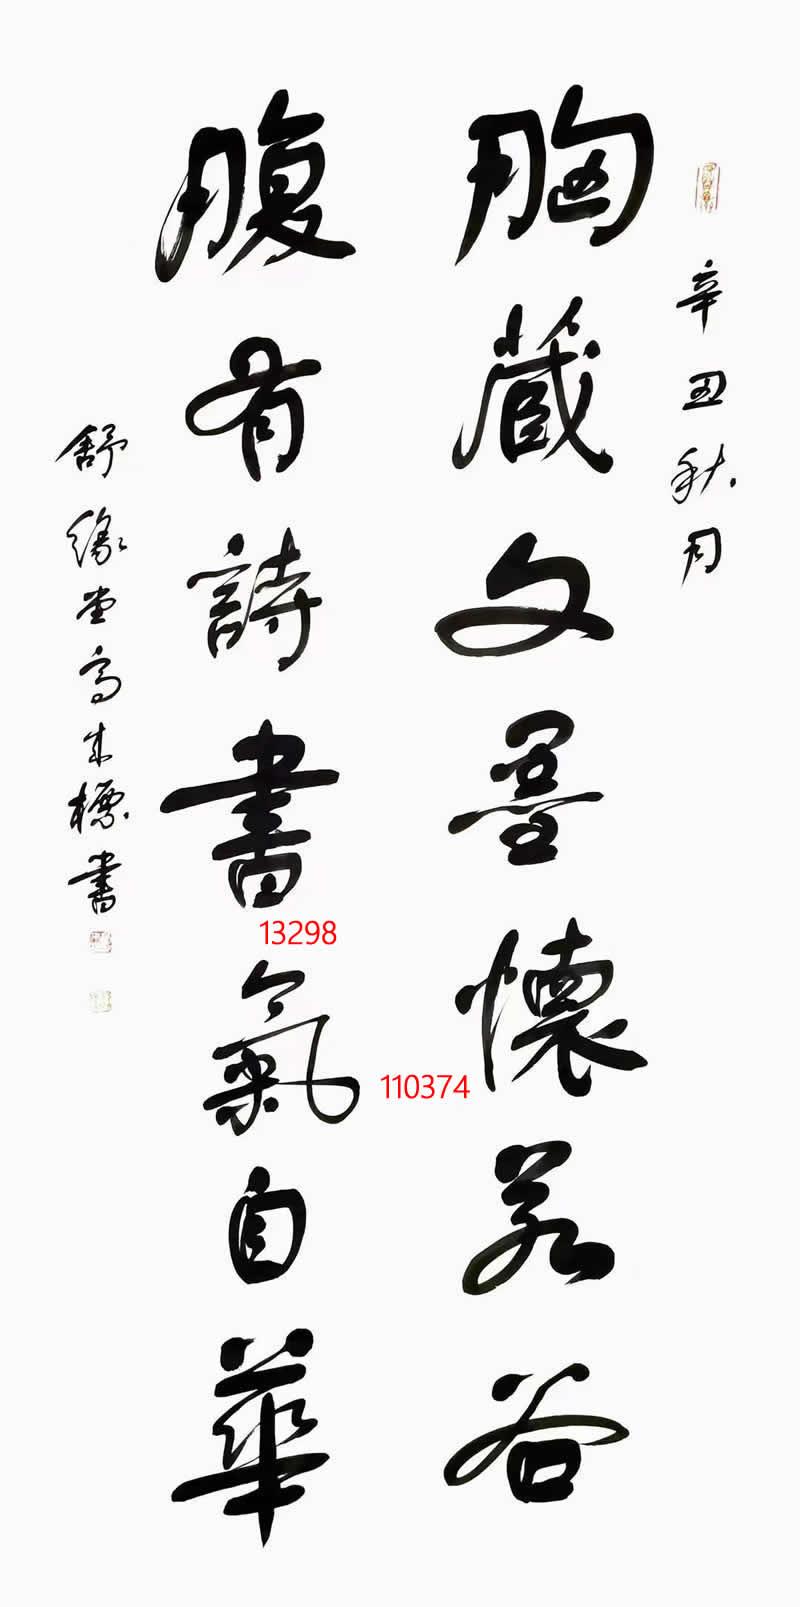 辛丑秋月
胸藏文墨懷若谷
腹有詩書氣自華
舒緣堂高来標書
13298
110374